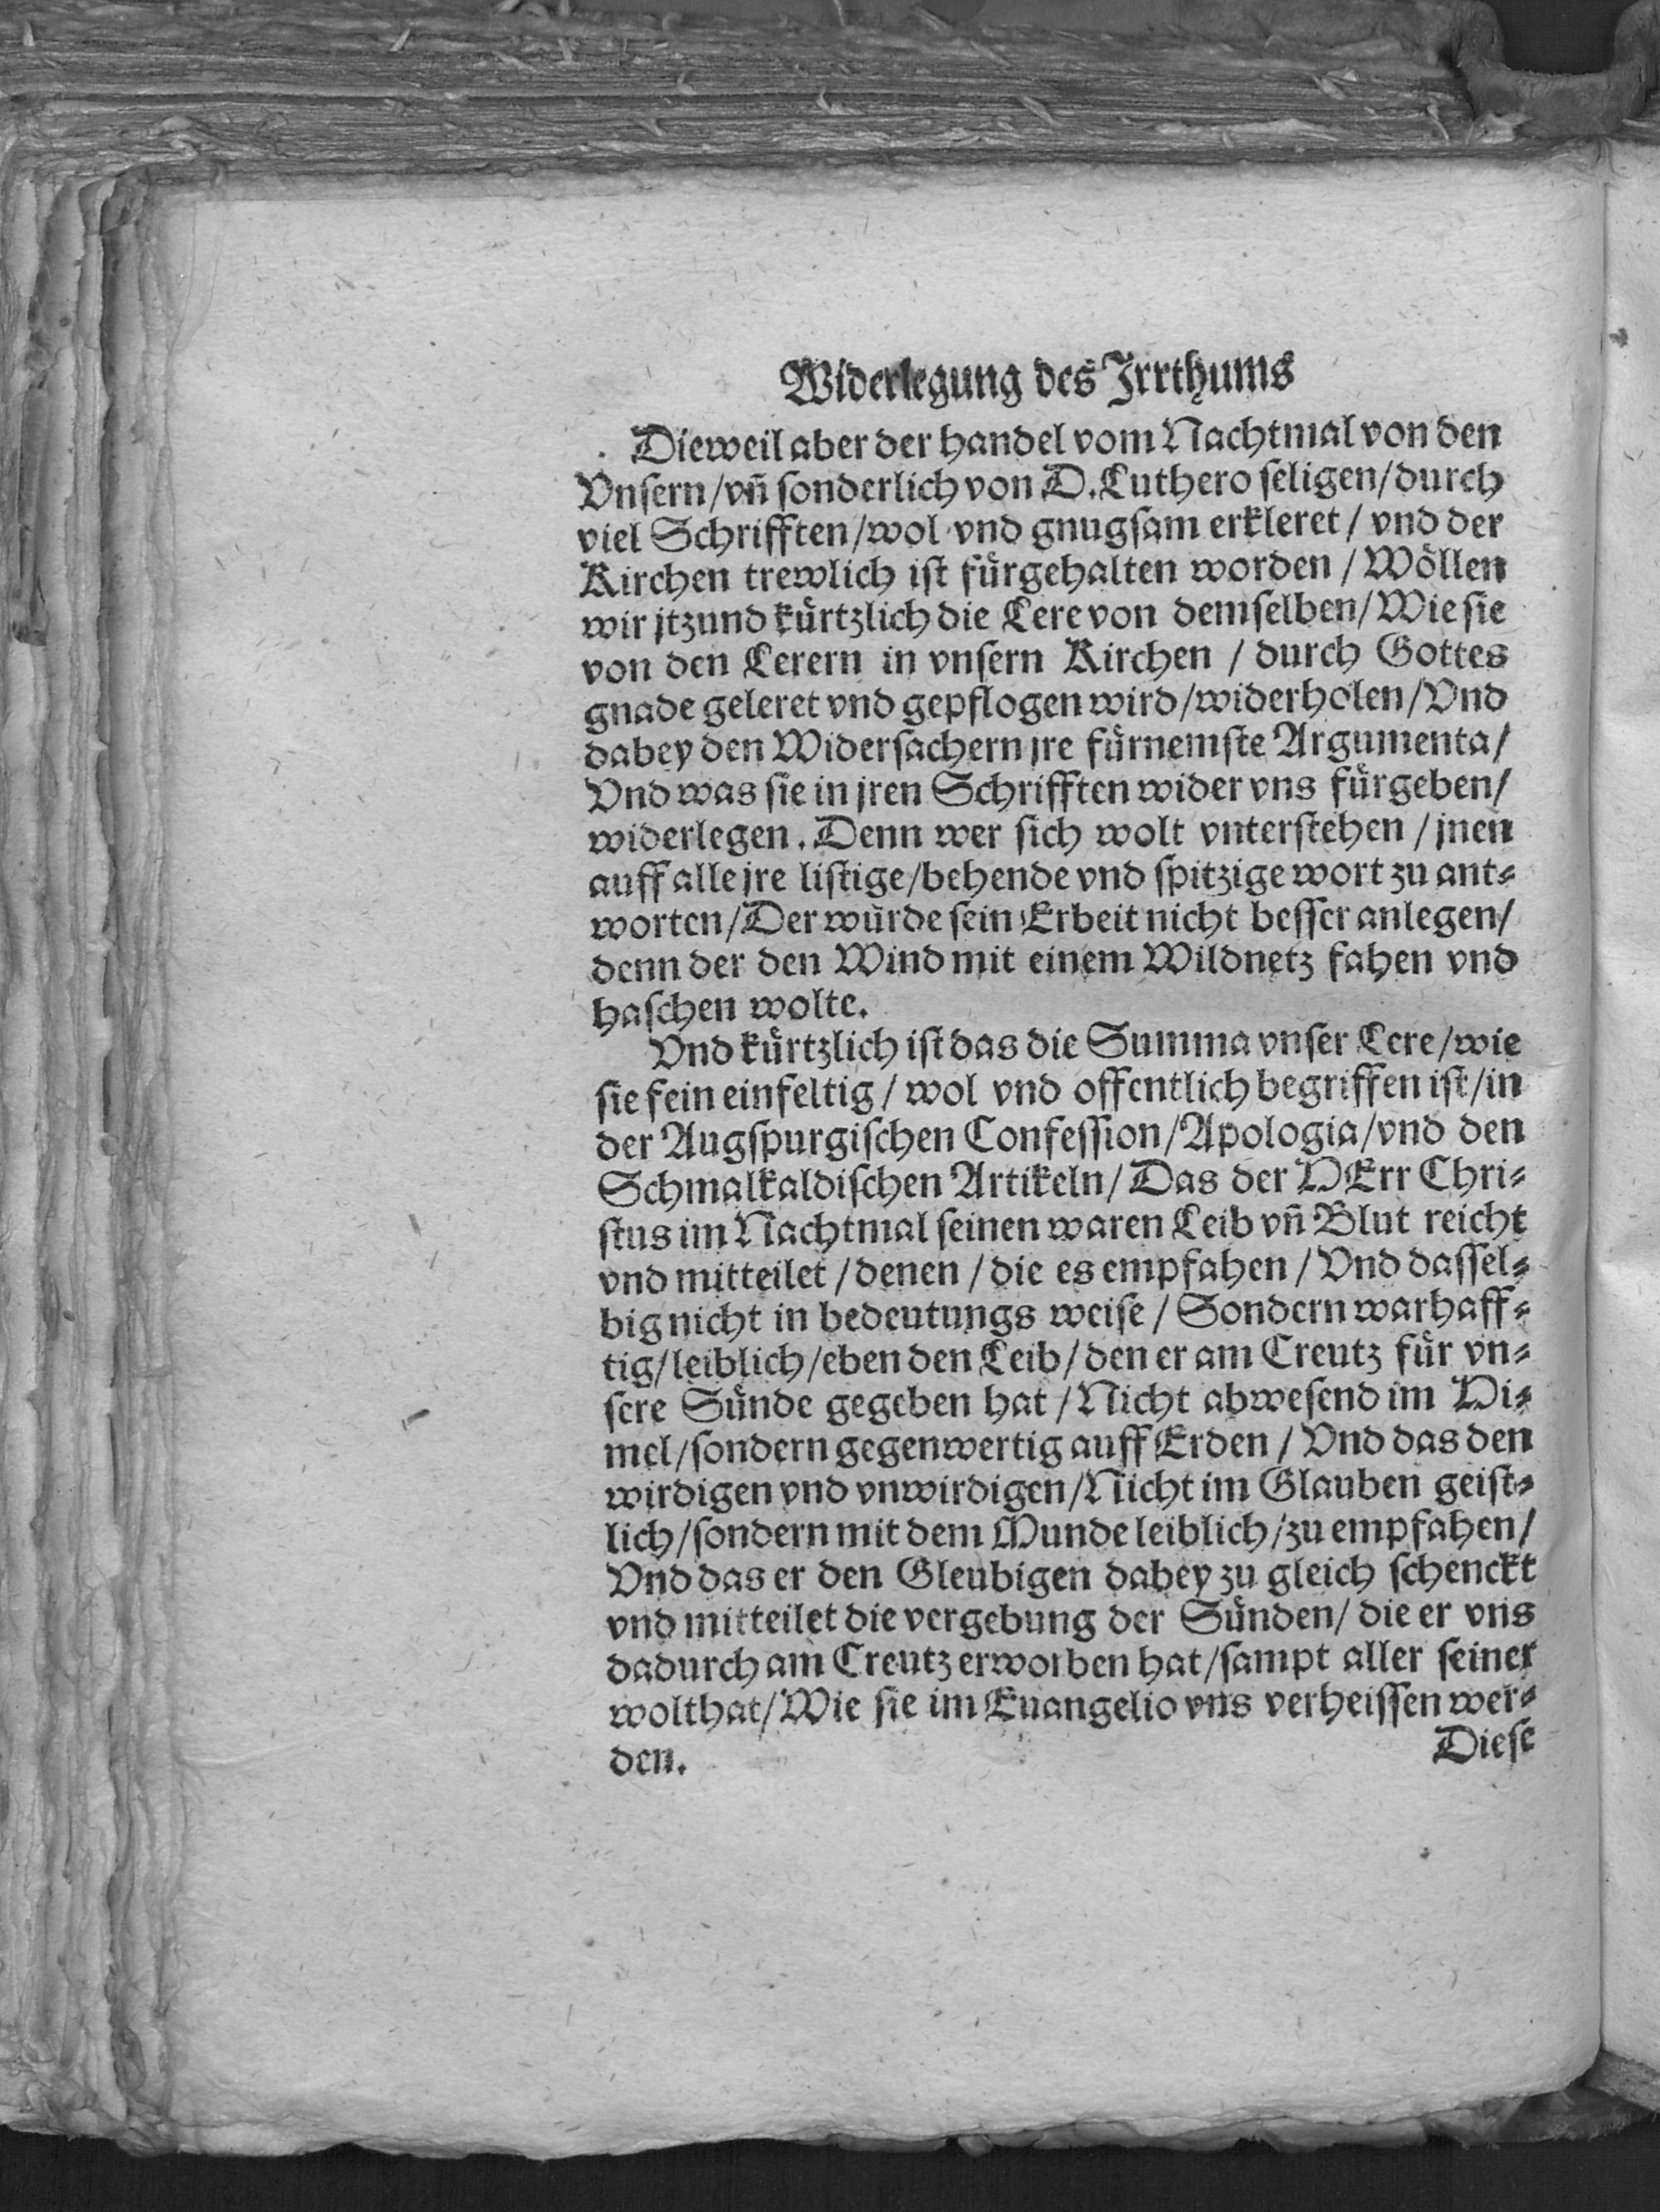 Widerlegung des Jrrthums
Dieweil aber der handel vom Nachtmal von den
Vnsern/vn̄ sonderlich von D. Luthero seligen/durch
viel Schrifften/wol vnd gnugsam erkleret/ vnd der
Kirchen trewlich ist fürgehalten worden / Wöllen
wir jtzund kürtzlich die Lere von demselben/Wie sie
von den Lerern in vnsern Kirchen / durch Gottes
gnade geleret vnd gepflogen wird/widerholen/Vnd
dabey den Widersachern jre fürnemste Argumenta/
Vnd was sie in jren Schrifften wider vns fürgeben/
widerlegen. Denn wer sich wolt vnterstehen / jnen
auff alle jre listige/behende vnd spitzige wort zu ant⸗
worten/Der würde sein Erbeit nicht besser anlegen/
denn der den Wind mit einem Wildnetz fahen vnd
haschen wolte.
Vnd kürtzlich ist das die Summa vnser Lere/wie
sie fein einfeltig/ wol vnd offentlich begriffen ist/in
der Augspurgischen Confession/Apologia/vnd den
Schmalkaldischen Artikeln/ Das der HErr Chri⸗
stus im Nachtmal seinen waren Leib vn̄ Blut reicht
vnd mitteilet /denen / die es empfahen / Vnd dassel⸗
big nicht in bedeutungs weise / Sondern warhaff⸗
tig/leiblich/eben den Leib/ den er am Creutz für vn⸗
sere Sünde gegeben hat /Nicht abwesend im Hi⸗
mel/sondern gegenwertig auff Erden / Vnd das den
wirdigen vnd vnwirdigen/Nicht im Glauben geist⸗
lich/sondern mit dem Munde leiblich/zu empfahen/
Vnd das er den Gleubigen dabey zu gleich schenckt
vnd mitteilet die vergebung der Sünden/ die er vns
dadurch am Creutz erworben hat/sampt aller seiner
wolthat/Wie sie im Euangelio vns verheissen wer⸗
den.
Diese